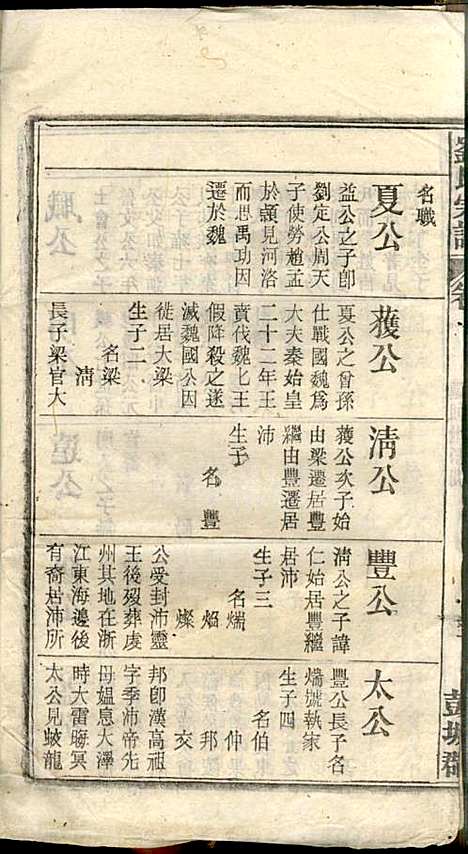 劉氏宗譜
彭城郡
名職
夏公
益公之子卽
劉定公周天
子使勞趙孟
於潁見河洛
而思禹功因
遷於魏
蒦公
夏公之曾孫
仕戰國魏爲
大夫秦始皇
二十二年王
賁伐魏匕王
假降殺之遂
滅魏國公因
徙居大梁
生子二
名梁
淸
長子梁官大
淸公
蒦公次子始
由梁遷居豐
繼由豐遷居
沛
生子
名豐
豐公
淸公之子諱
仁始居豐繼
居沛
生子三
名煓
焔
燦
公受封沛靈
王後殁葬虔
州其地在浙
江東海邊後
有裔居沛所
太公
豐公長子名
煓號執家
生子四
名伯
仲
邦
交
邦卽漢高祖
字季沛帝先
母媼息大澤
時大雷晦冥
太公見蛟龍